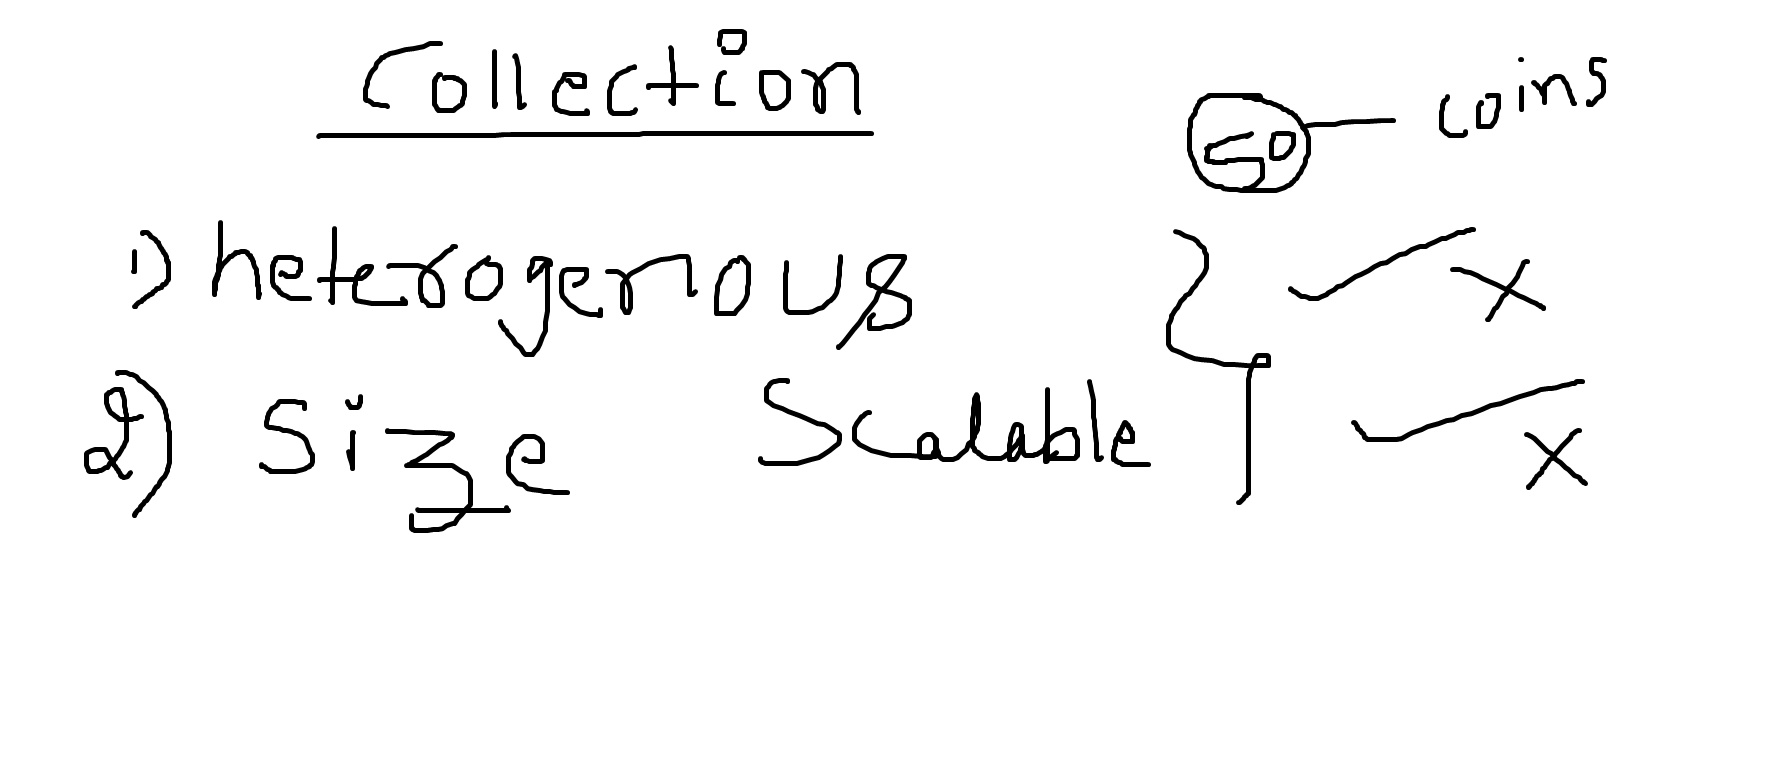 Collection
50 coins
1) heterogenous
2) Size Scalable